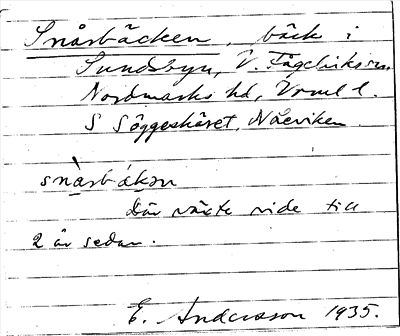 Snårbäcken, bäck i
Sundsbyn, V. Fågelviks sn.
Nordmarks hd, Vrml l.
S Söggeskäret, Näsviken
snàrbäkən
Där växte vide till
2 år sedan.
E. Andersson 1935.